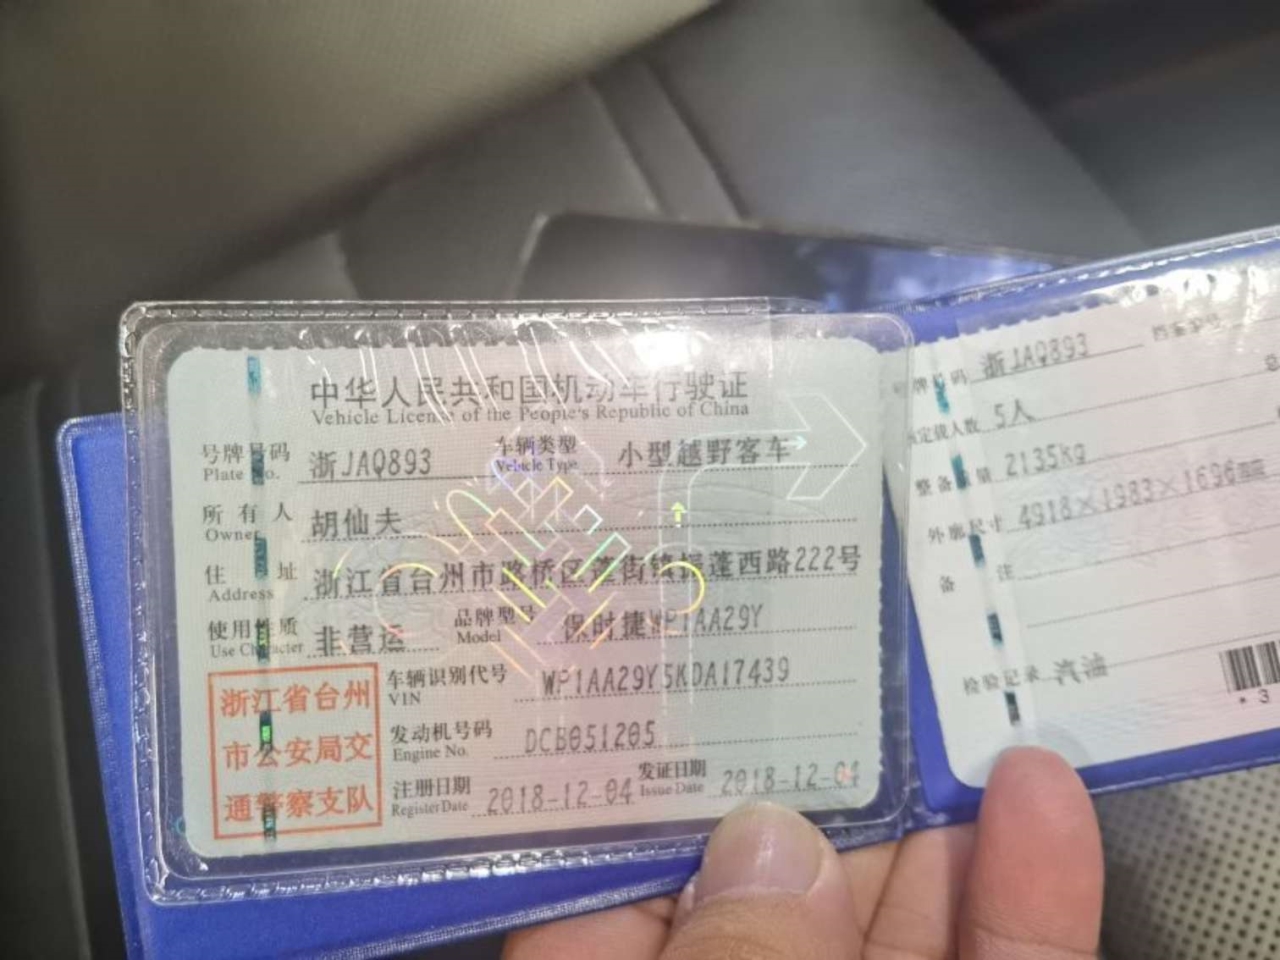 中华人民共和国机动车行驶证
Vehicle License of the People's Republic of China
号牌号码 浙JAQ893 车辆类型 小型越野客车
Plate No. Vehicle Type
所有人 胡仙夫
Owner
住址 浙江省台州市路桥区蓬街镇振蓬西路222号
Address
使用性质 非营运 品牌型号 保时捷WP1AA29Y
Use Character Model
浙江省台州
市公安局交
通警察支队
车辆识别代号 WP1AA29Y5KDA17439
VIN
发动机号码 DCB051205
Engine No.
注册日期 2018-12-04 发证日期 2018-12-04
Register Date Issue Date
号牌号码 浙JAQ893 档案编号
核定载人数 5人
整备质量 2135kg
外廓尺寸 4918×1983×1696mm
备注
检验记录 汽油
*3